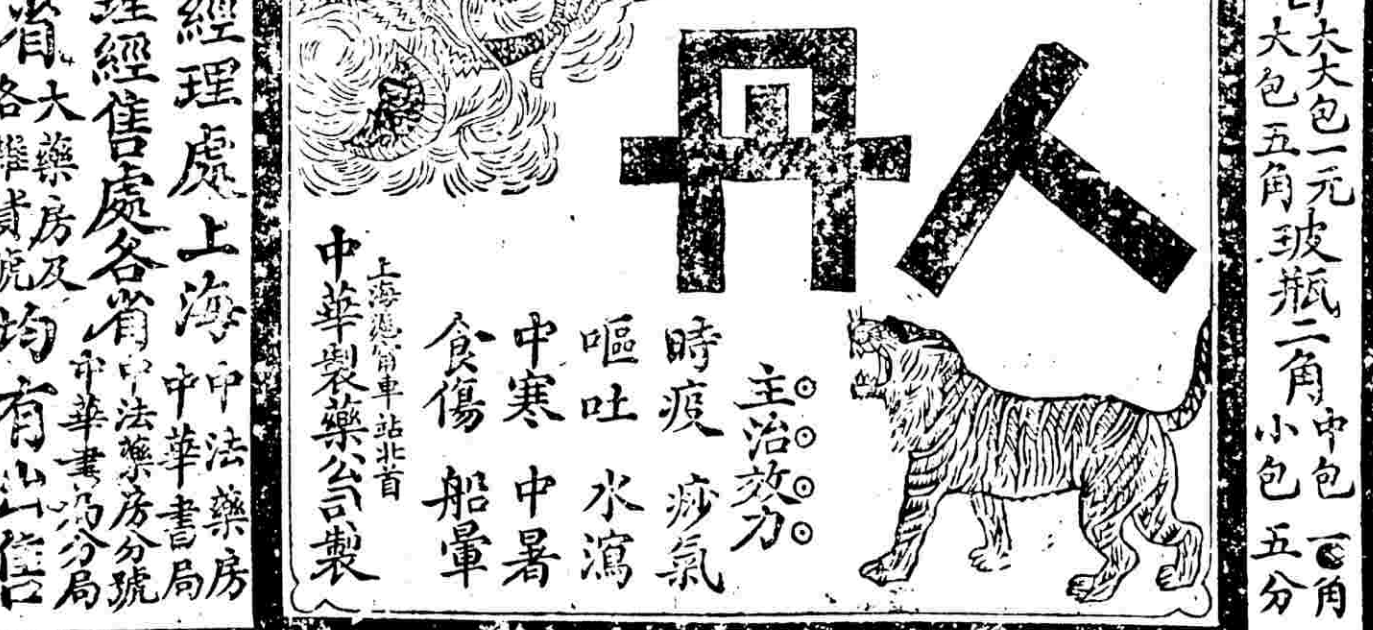 大大包一元
大包五角
玻瓶二角
中包一角
小包五分
人丹
主治效力
時疫 痧氣
嘔吐 水瀉
中寒 中暑
食傷 船暈
上海滬甯車站北首
中華製藥公司製
經理處上海
中法藥房
中華書局
經售處各省
中法藥房分號
中華書局分局
省
大藥房及
各雜貨號
均有出售